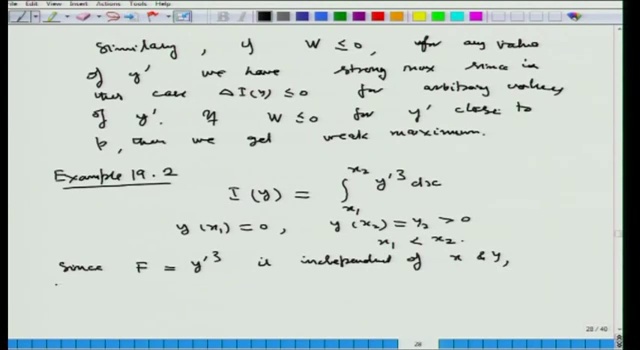 File Edit View Insert Actions Tools Help
Similary, if W ≤ 0, for any value
of y' we have strong max since in
this case ΔI(y) ≤ 0 for arbitrary values
of y'. If W ≤ 0 for y' close to
p, then we get weak maximum.
Example 19.2
I(y) = ∫_{x₁}^{x₂} y'³ dx
y(x₁) = 0, y(x₂) = y₂ > 0
x₁ < x₂.
Since F = y'³ is independent of x & y,
28 / 40
28